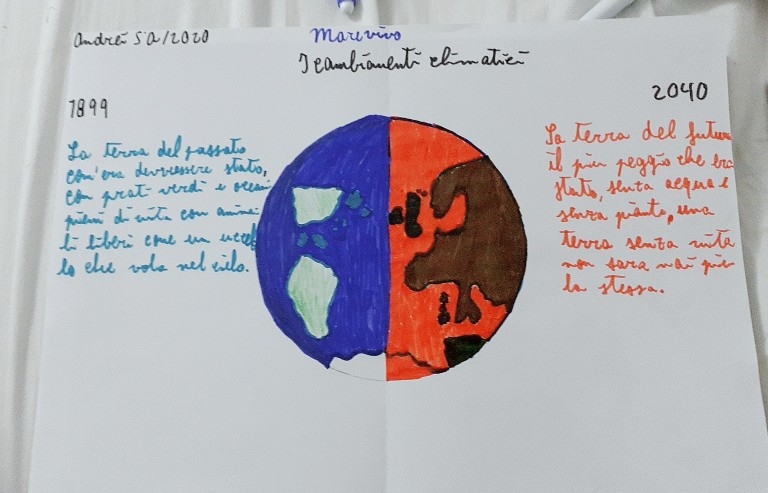 Andrei 5A/2020
Marevivo
I cambiamenti climatici
1899
La terra del passato
com'era devressere stato,
con prati verdi e oceani
pieni di vita con anima
li liberi come un uccel
lo che vola nel cielo.
2040
La terra del futuro
il piu peggio che era
stato, senza acqua e
senza piante, una
terra senza vita
non sara mai piu
la stessa.